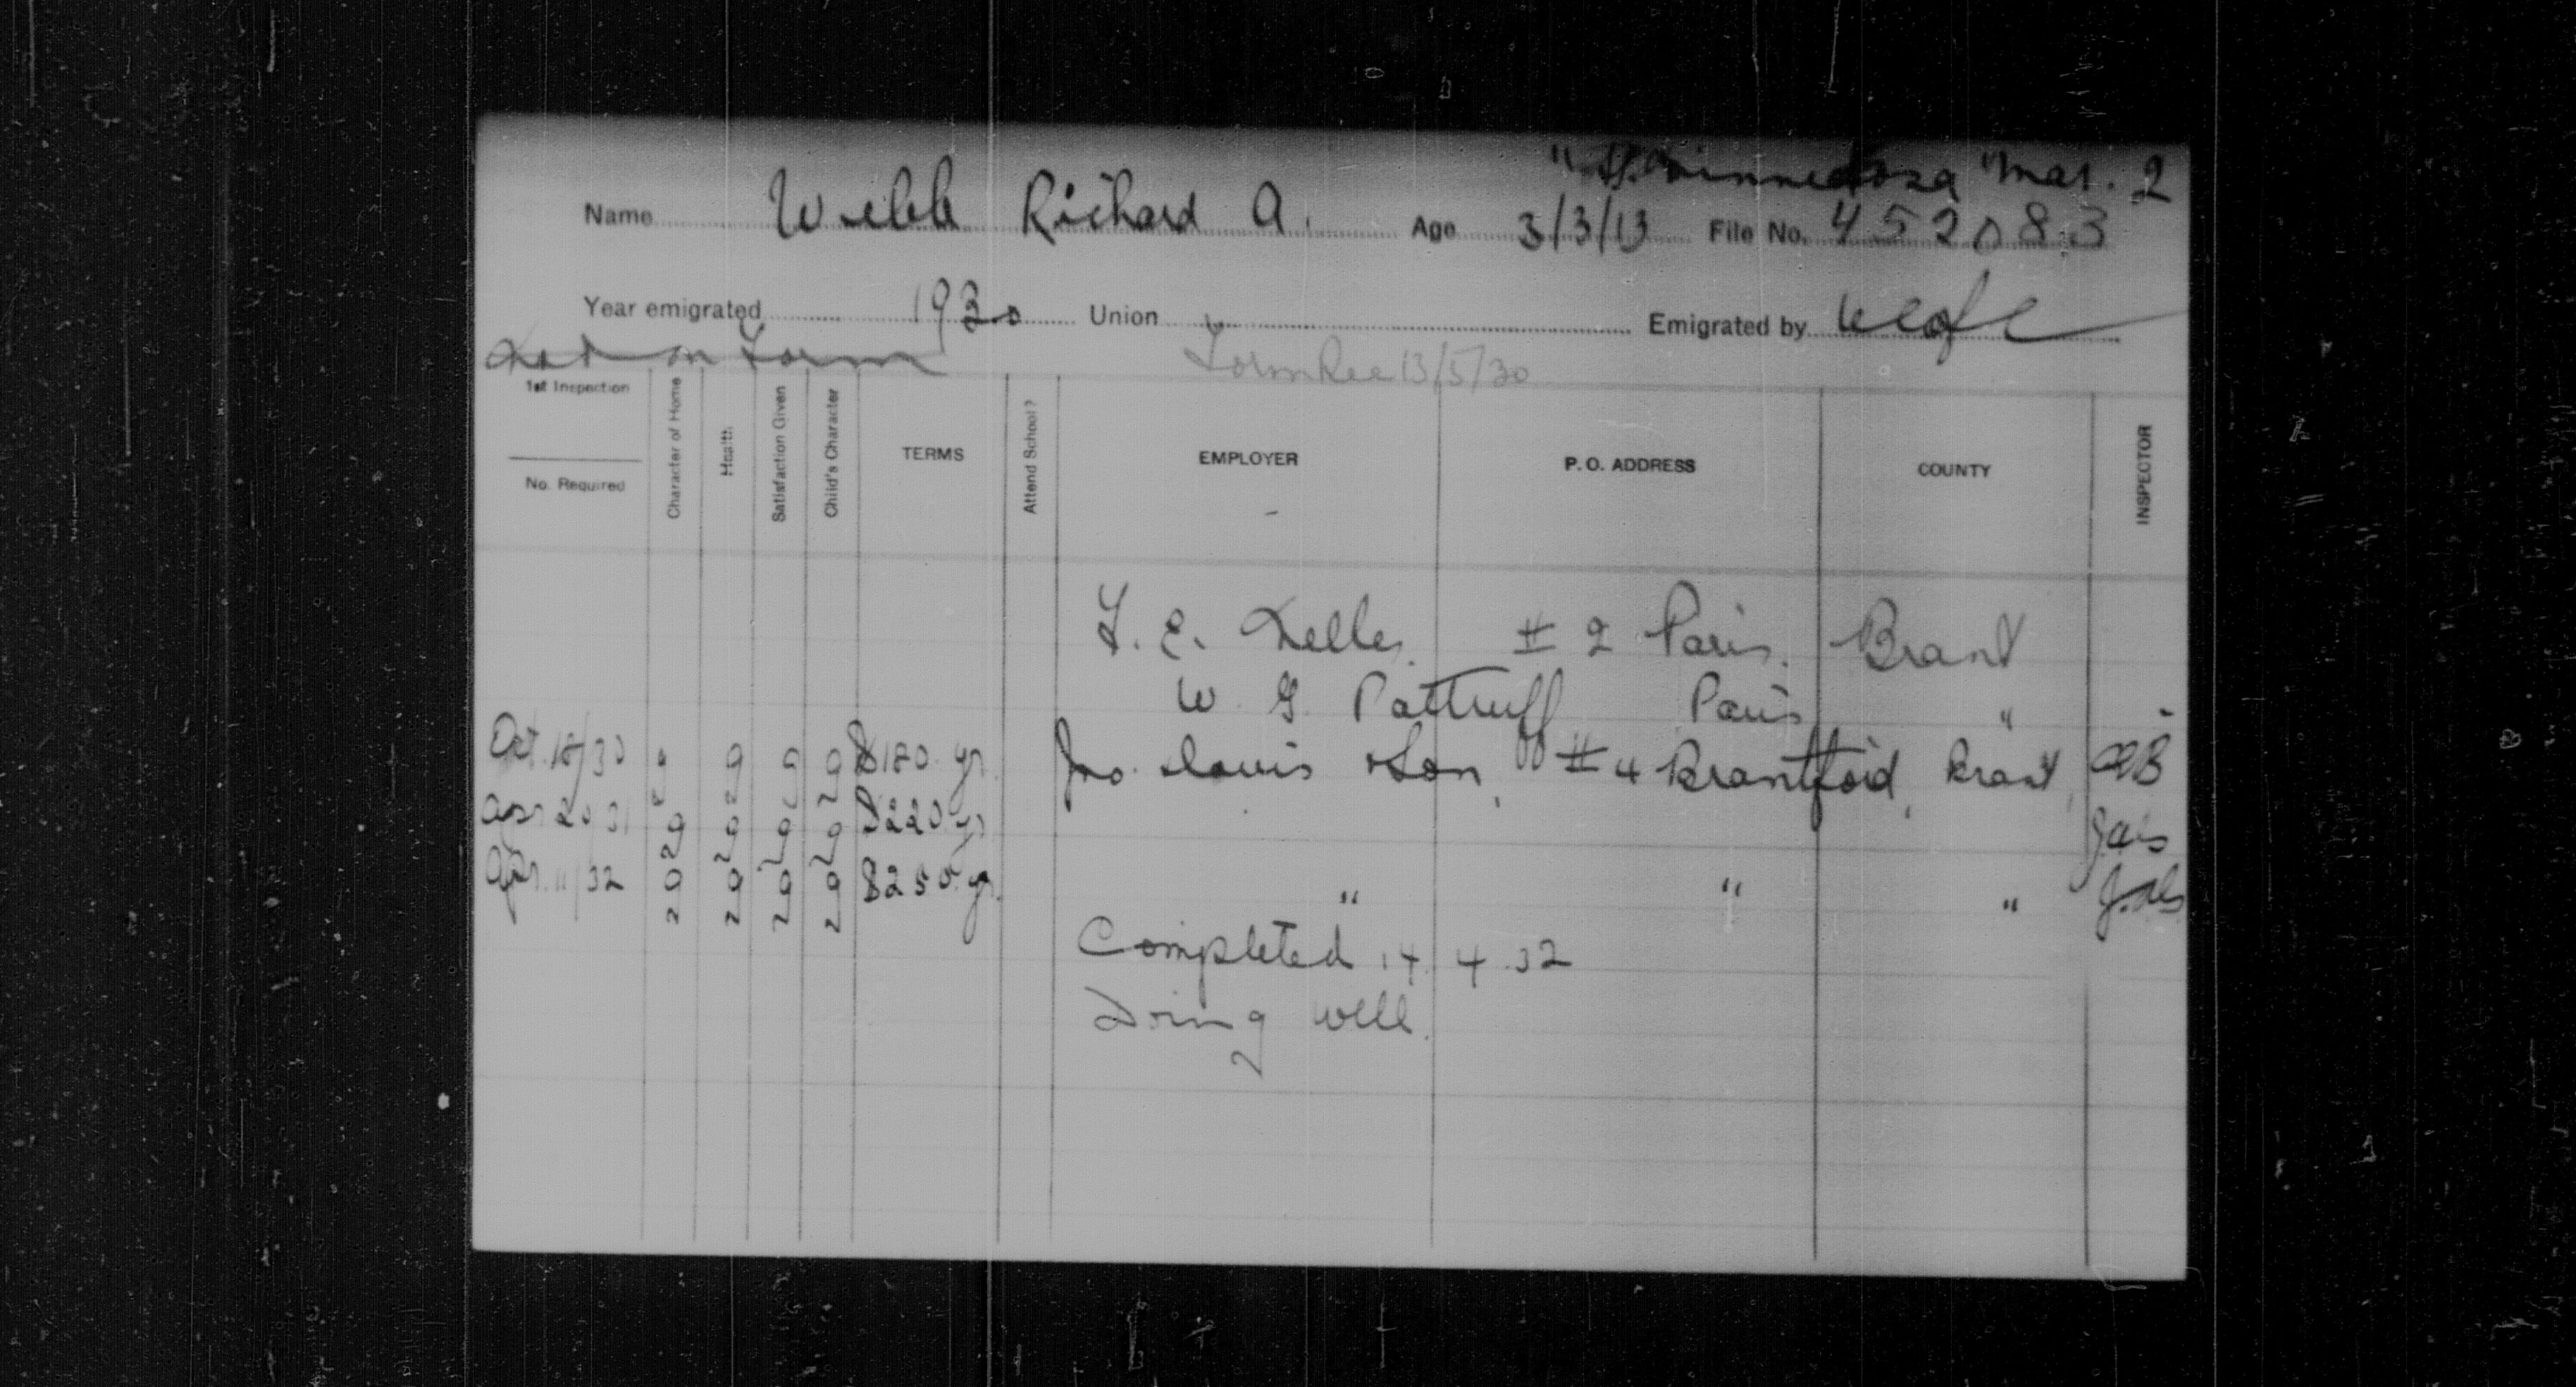 "Minnedosa" Mar. 2
Name Webb Richard A. Age 3/3/13 File No. 452083
Year emigrated 1930 Union Emigrated by
not on Form Form Rec 13/5/30
1st Inspection
No. Required
Character of Home
Health
Satisfaction Given
Child's Character
TERMS
Attend School?
EMPLOYER
P. O. ADDRESS
COUNTY
INSPECTOR
# 2 Paris. Brant
W. G. Pattruff Paris "
Oct. 18/30 g g g g $180 yr. Jno. Davis & Son, # 4 Brantford, Brant,
Apr 20 31 g g g g $220 yr
Apr. 11/32 g g g g $250 yr. " " "
Completed 14 4 32
Doing well.